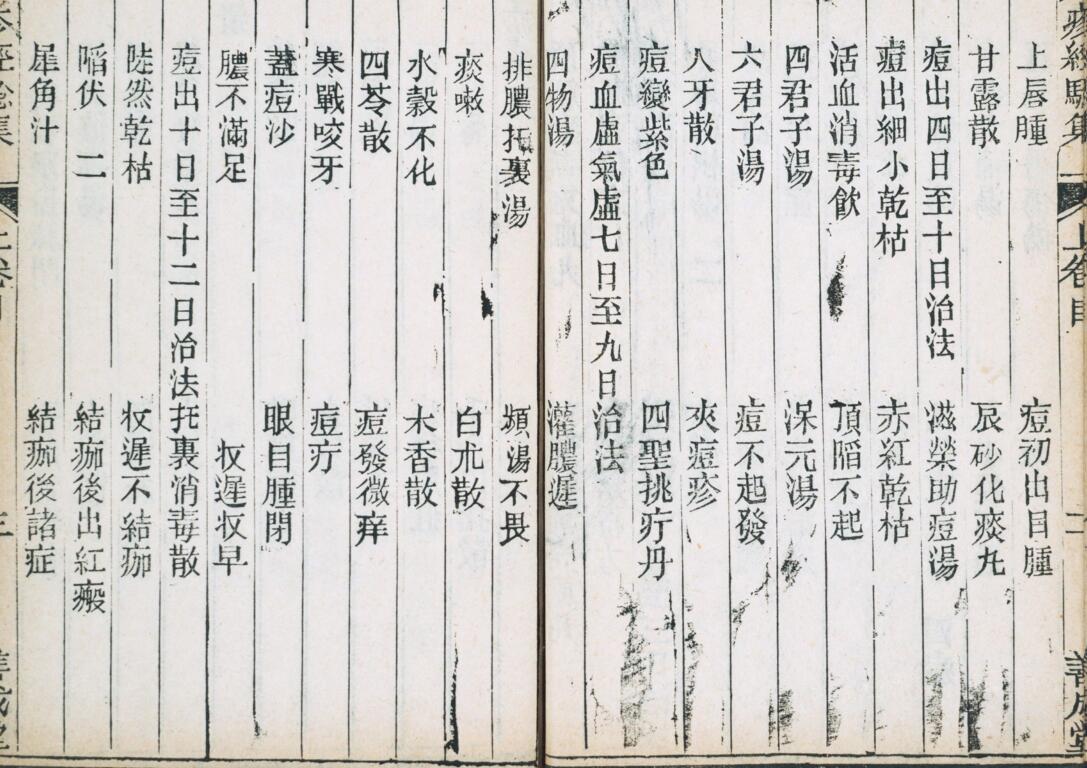 上唇腫 痘初出目腫
甘露散 辰砂化痰丸
痘出四日至十日治法 滋榮助痘湯
痘出細小乾枯 赤紅乾枯
活血消毒飲 頂陷不起
四君子湯 保元湯
六君子湯 痘不起發
八牙散 夾痘疹
痘變紫色 四聖挑疔丹
痘血虛氣虛七日至九日治法
四物湯 灌膿遲
排膿托裏湯 頻湯不畏
痰嗽 白朮散
水穀不化 木香散
四苓散 痘發微痒
寒戰咬牙 痘疔
蓋痘沙 眼目腫閉
膿不滿足 收遲收早
痘出十日至十二日治法 托裏消毒散
陡然乾枯 收遲不結痂
陷伏二 結痂後出紅瘢
犀角汁 結痂後諸症
上卷目
二
善成堂
三